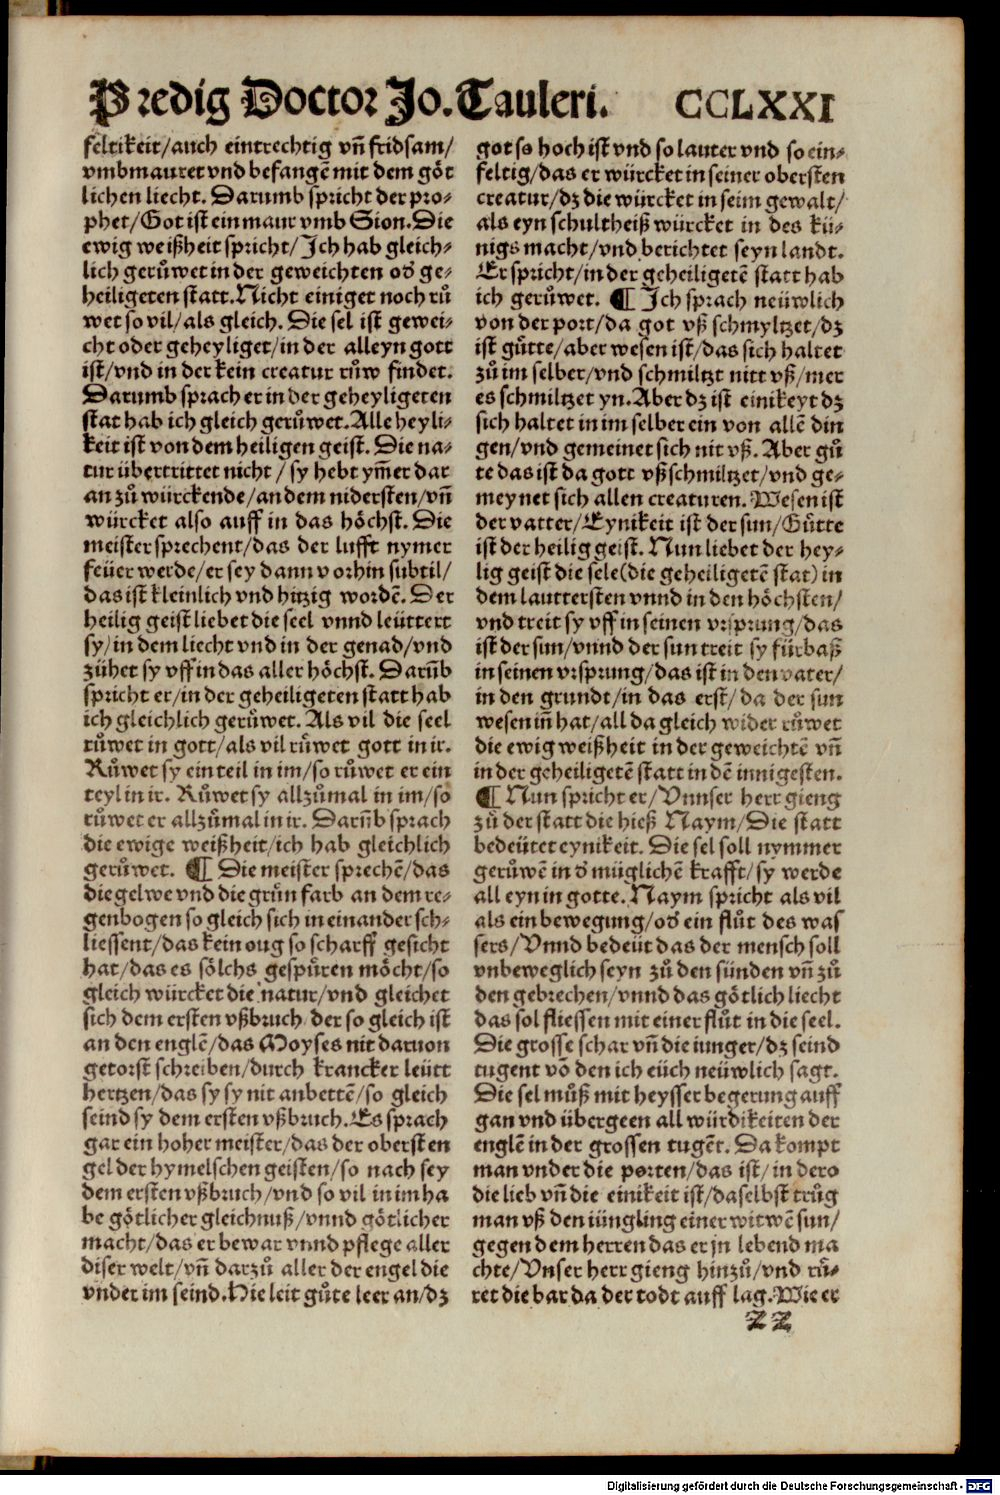 Predig Doctor Jo. Tauleri. CCLXXI
feltikeit/auch eintrechtig vn̄ fridsam/
vmbmauret vnd befangē mit dem göt
lichen liecht. Darumb spricht der pro-
phet/Got ist ein maur vmb Sion. Die
ewig weißheit spricht/Jch hab gleich-
lich gerůwet in der geweichten od' ge-
heiligeten statt. Nicht einiget noch rů
wet so vil/als gleich. Die sel ist gewei-
cht oder geheyliget/in der alleyn gott
ist/vnd in der kein creatur růw findet.
Darumb sprach er in der geheyligeten
stat hab ich gleich gerůwet. Alle heyli-
keit ist von dem heiligen geist. Die na-
tur übertrittet nicht/sy hebt ym̄er dar
an zů würckende/an dem nidersten/vn̄
würcket also auff in das höchst. Die
meister sprechent/das der lufft nymer
feüer werde/er sey dann vorhin subtil/
das ist kleinlich vnd hitzig wordē. Der
heilig geist liebet die seel vnnd leüttert
sy/in dem liecht vnd in der genad/vnd
zühet sy vff in das aller höchst. Darūb
spricht er/in der geheiligeten statt hab
ich gleichlich gerůwet. Als vil die seel
růwet in gott/als vil růwet gott in ir.
Růwet sy ein teil in im/so růwet er ein
teyl in ir. Růwet sy allzůmal in im/so
růwet er allzůmal in ir. Darūb sprach
die ewige weißheit/ich hab gleichlich
gerůwet. ¶ Die meister sprechē/das
die gelwe vnd die grůn farb an dem re-
genbogen so gleich sich in einander sch-
liessent/das kein oug so scharff gesicht
hat/das es sölchs gespüren möcht/so
gleich würcket die natur/vnd gleichet
sich dem ersten vßbruch der so gleich ist
an den englē/das Moyses nit daruon
getorst schreiben/durch krancker leütt
hertzen/das sy sy nit anbettē/so gleich
seind sy dem ersten vßbruch. Es sprach
gar ein hoher meister/das der oberst en
gel der hymelschen geisten/so nach sey
dem ersten vßbruch/vnd so vil in im ha
be götlicher gleichnuß/vnnd götlicher
macht/das er bewar vnnd pflege aller
diser welt/vn̄ darzů aller der engel die
vnder im seind. Hie leit gůte leer an/dz
got so hoch ist vnd so lauter vnd so ein-
feltig/das er würcket in seiner obersten
creatur/dz die würcket in seim gewalt/
als eyn schultheiß würcket in des kü-
nigs macht/vnd berichtet seyn landt.
Er spricht/in der geheiligetē statt hab
ich gerůwet. ¶ Jch sprach neüwlich
von der port/da got vß schmyltzet/dz
ist gůtte/aber wesen ist/das sich haltet
zů im selber/vnd schmiltzt nitt vß/mer
es schmiltzet yn. Aber dz ist einikeyt dz
sich haltet in im selber ein von allē din
gen/vnd gemeinet sich nit vß. Aber gů
te das ist da gott vß schmiltzet/vnd ge-
meynet sich allen creaturen. Wesen ist
der vatter/Eynikeit ist der sun/Gůtte
ist der heilig geist. Nun liebet der hey-
lig geist die sele(die geheiligetē stat) in
dem lauttersten vnnd in den höchsten/
vnd treit sy vff in seinen vrsprung/das
ist der sun/vnnd der sun treit sy fürbaß
in seinen vrsprung/das ist in den vater/
in den grundt/in das erst/da der sun
wesen in̄ hat/all da gleich wider růwet
die ewig weißheit in der geweichtē vn̄
in der geheiligetē statt in dē innigesten.
¶ Nun spricht er/Vnnser herr gieng
zů der statt die hieß Naym/Die statt
bedeütet eynikeit. Die sel soll nymmer
gerůwē in d' müglichē krafft/sy werde
all eyn in gotte. Naym spricht als vil
als ein bewegung/od' ein flůt des was
sers/Vnnd bedeüt das der mensch soll
vnbeweglich seyn zů den sünden vn̄ zů
den gebrechen/vnnd das götlich liecht
das sol fliessen mit einer flůt in die seel.
Die grosse schar vn̄ die iunger/dz seind
tugent vō den ich eüch neüwlich sagt.
Die sel můß mit heysser begerung auff
gan vnd übergeen all würdikeiten der
englē in der grossen tugēt. Da kompt
man vnder die porten/das ist/in dero
die lieb vn̄ die einikeit ist/daselbst trůg
man vß den iüngling einer witwē sun/
gegen dem herren das er jn lebend ma
chte/Vnser herr gieng hinzů/vnd rů-
ret die bar da der todt auff lag. Wie er
Digitalisierung gefördert durch die Deutsche Forschungsgemeinschaft - DFG